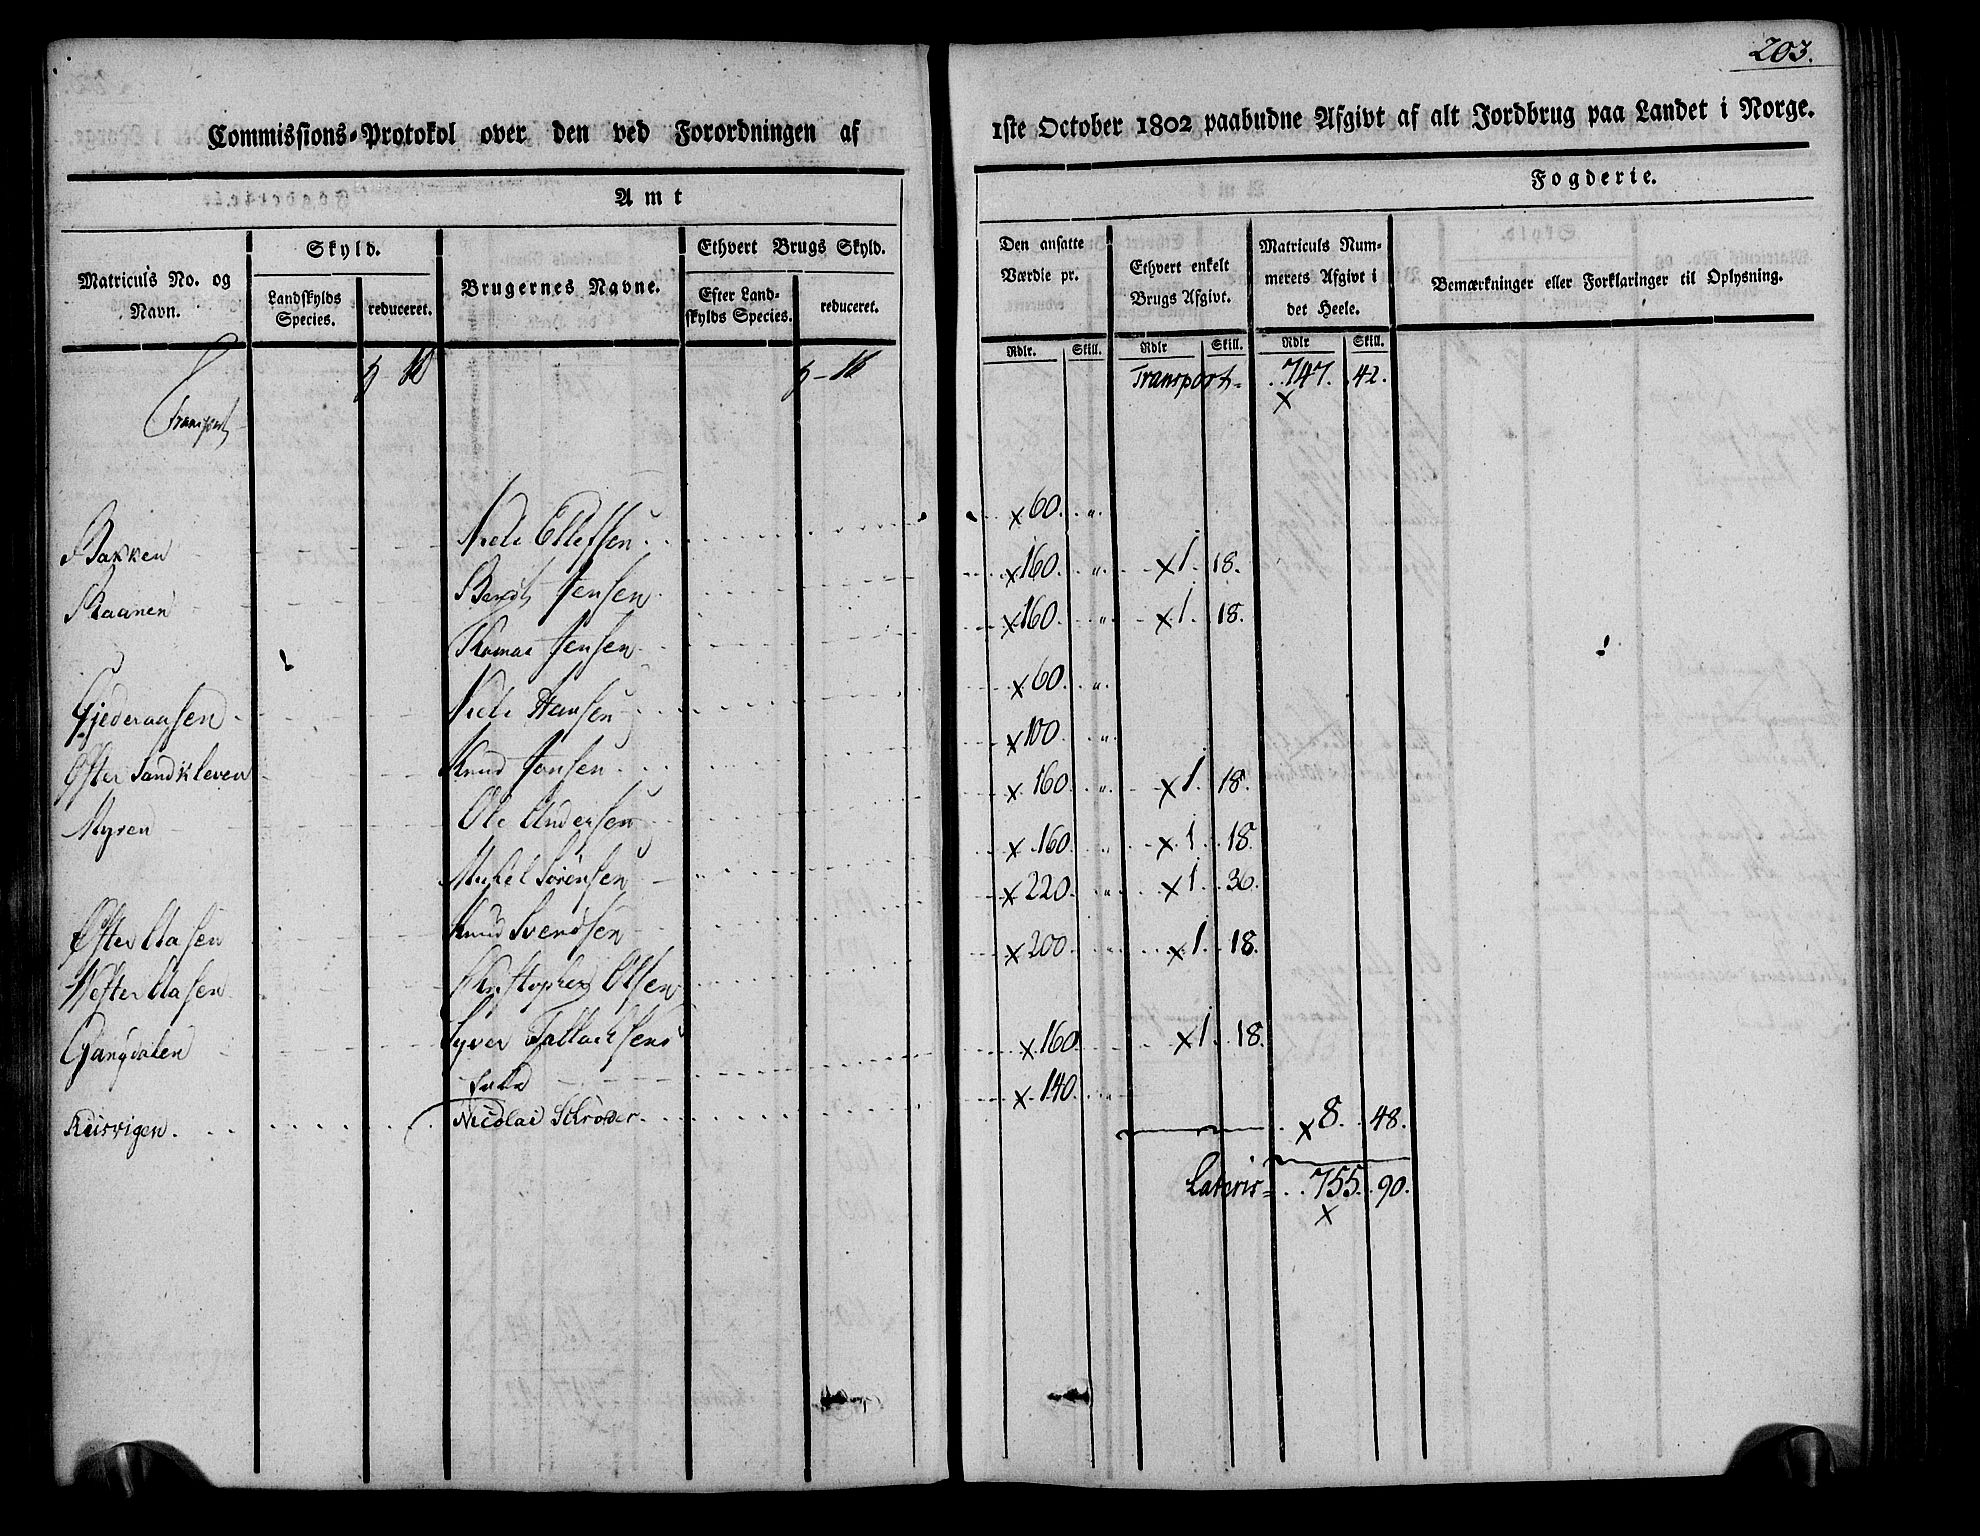 203.
Commissions-Protokol over den ved Forordningen af 1ste October 1802 paabudne Afgivt af alt Jordbrug paa Landet i Norge.
Amt Fogderie.
Matriculs No. og Navn. Skyld. Landskylds Species. reduceret. Brugernes Navne. Ethvert Brugs Skyld. Efter Landskylds Species. reduceret. Den ansatte Værdie pr. Ethvert enkelt Brugs Afgivt. Matriculs Nummerets Afgivt i det Heele. Bemærkninger eller Forklaringer til Oplysning.
Rdlr. Skill. Rdlr Skill. Rdlr Skill.
Transport Transport 747. 42.
Bakken Niels Ellefsen x 60. "
Raanen Berndt Jensen x 160. " x 1. 18.
Thomas Jensen x 160. " x 1. 18.
Gjederaasen Niels Hansen x 60. "
Øster Sandkleven Knud Jensen x 100. "
Myren Ole Andersen x 160. " x 1. 18.
Michel Sørensen x 160. " x 1. 18.
Øster Aasen Knud Svendsen x 220. " x 1. 36.
Wester Aasen Christopher Olsen x 200. " x 1. 18.
Gangdalen Syver Tallachsens x 160. x 1. 18.
Enke
Kiisvigen. Nicolai Schrøder. x 140. "
x 8. 48.
Lateris 755. 90.